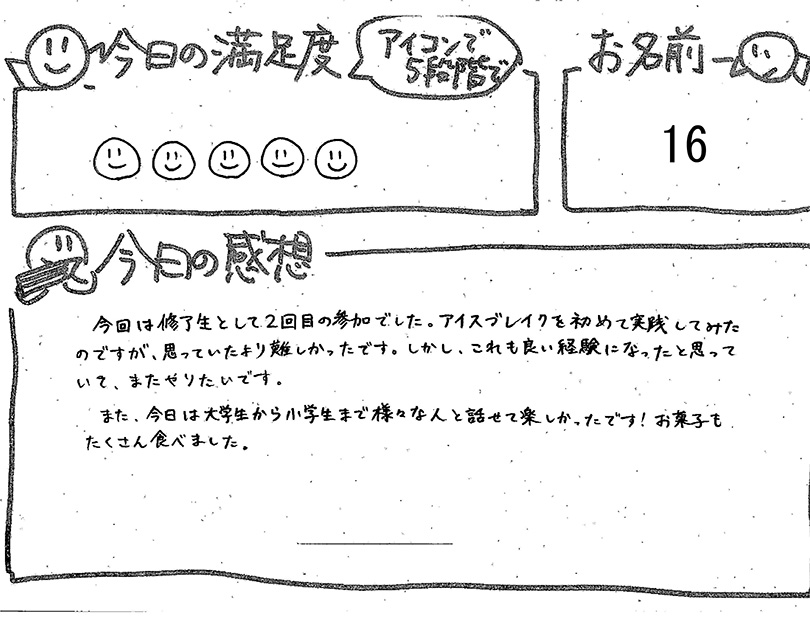 今日の満足度
アイコンで
5段階で
お名前
16
今日の感想
今回は修了生として2回目の参加でした。アイスブレイクを初めて実践してみた
のですが、思っていたより難しかったです。しかし、これも良い経験になったと思って
いて、またやりたいです。
また、今日は大学生から小学生まで様々な人と話せて楽しかったです!お菓子も
たくさん食べました。